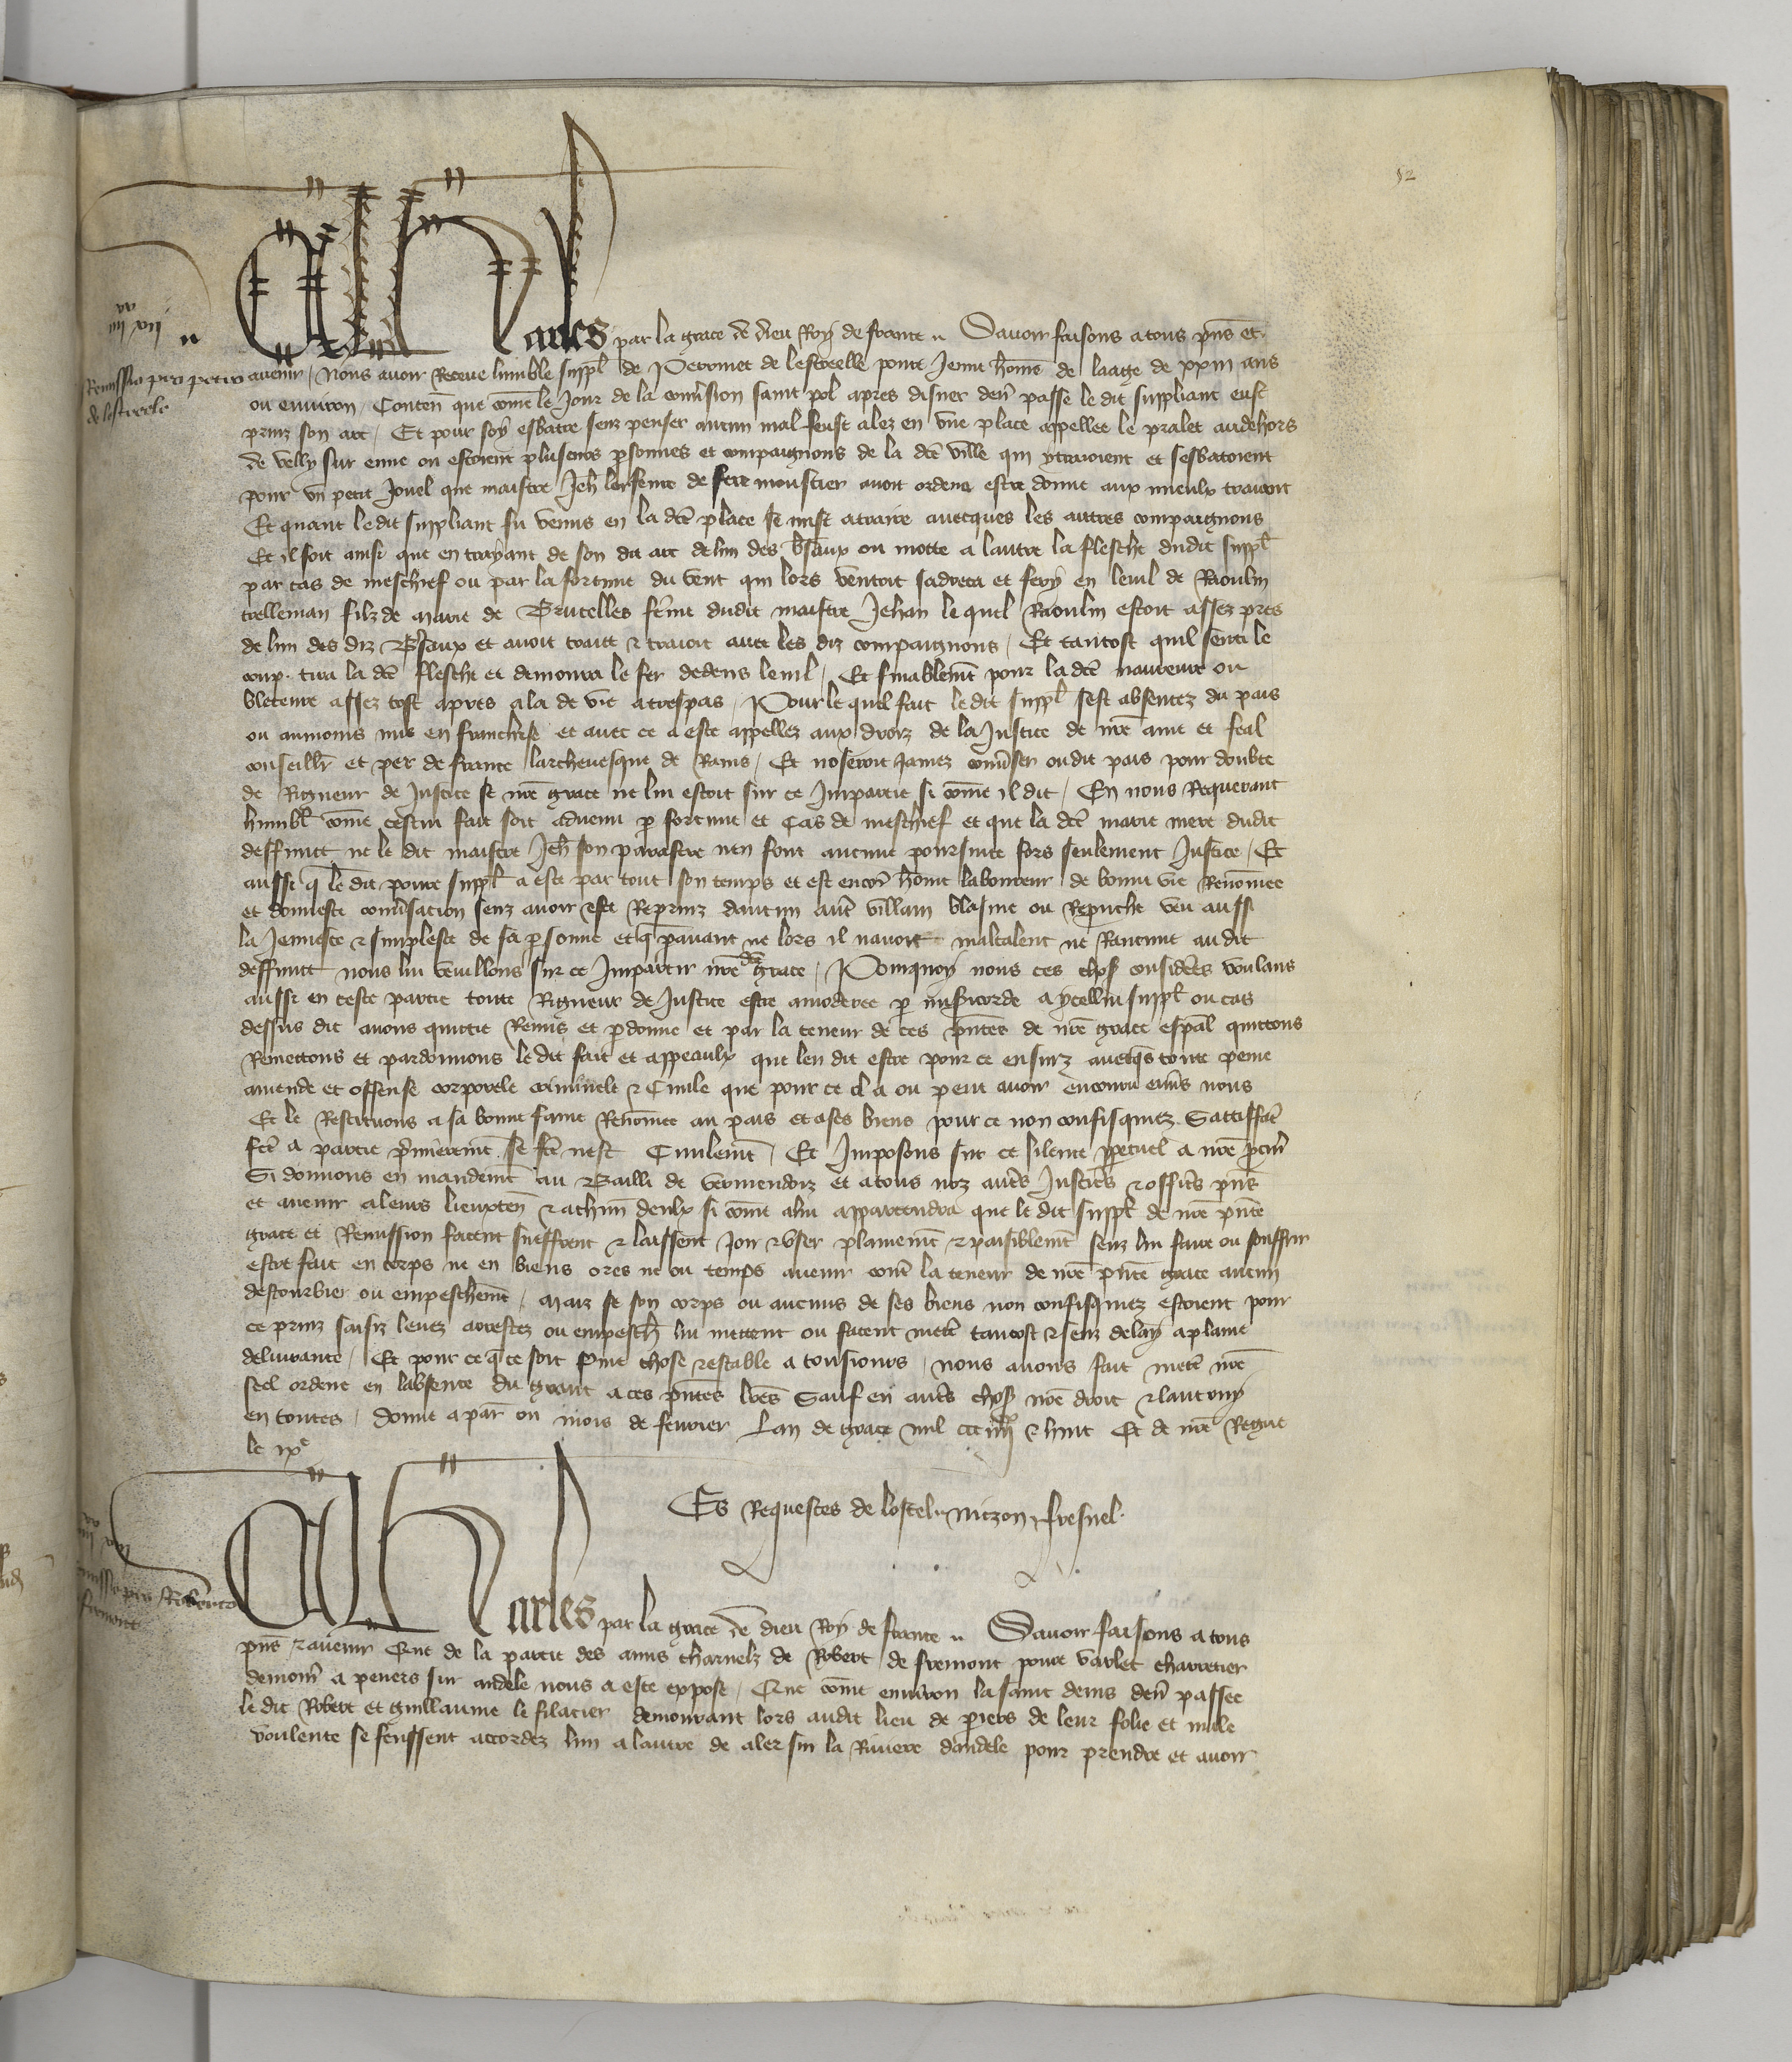 52
xx
iiii xvii
Remissio pro petro
de lestreele
Charles par la grace de dieu Roy de france .. Savoir faisons a tous pñs et
avenir / Nous avoir Receue humble suppl̃ de Perronet de lestreelle povre Jeune hõme de laage de xxiii ans
ou environ / Conten̄ que cõme le Jour de la conv̄sion saint pol apres disner dern̄ passe le dit suppliant eust
prins son arc / Et pour soy esbatre senz penser aucun mal feust alez en une place appellee le pralet audehors
de velly sur enne ou estoient plusieurs ꝑsonnes et compaignons de la dc̃e ville qui ytraioient et sesbatoient
pour un petit Jouel que maistre Jeh̃ de feremoustier avoit ordene estre donne aux mieulx traioit
Et quant ledit suppliant fu venus en la dc̃e place se mist atraire avecques les autres compaignons
Et il soit ainsi que en trayant de son dit arc de lun des b̃saux ou motte a lautre la flesche dudit suppl̃
par cas de meschief ou par la fortune du vent qui lors ventoit sadreca et fery en leuil de Raoulin
trelleman filz de marie de Brucelles fem̃e dudit maistre Jehan le quel Raoulin estoit assez pres
de lun des diz B̃saux et avoit trait & traioit avec les diz compaignons / Et tantost quil senti le
coup tira la dc̃e flesche et demoura le fer dedens leuil / Et finablemẽt pour la dc̃e navreure ou
bleceure assez tost apres ala de vie a trespas / Pour le quel fait le dit suppl̃ sest absentez du pais
ou aumoins mis en franchise et avec ce a este appellez aux droiz de la Justice de nr̃e ame et feal
conseill̃r et per de france larchevesque de Rains / Et noseroit Jamez conv̄ser oudit pais pour doubte
de Rigueur de Justice se nr̃e grace ne lui estoit sur ce Impartie si cõme il dit / En nous Requerant
humbl̃ cõme cestui fait soit advenu ꝑ fortune et Cas de meschief et que la dc̃e marie mere dudit
deffunct ne le dit maistre Jeh̃ son parastre nen font aucune poursuite fors seulement Justice / Et
aussi q̃ le dit povre suppl̃ a este par tout son temps et est encor̃ hõme laboureur de bonne vie Renõmee
et honneste conv̄sacion senz avoir este Reprinz daucun aut̃ villain blasme ou Reprouche veu aussi
la Jeunesce & simplesce de sa ꝑsonne et q̃ ꝑavant ne lors il navoit maltalent ne Rancune au dit
deffunct nous lui veuillons sur ce Impartir nr̃e dc̃e grace / Pourquoy nous ces choses considerees voulans
aussi en ceste partie toute Rigueur de Justice estre amoderee ꝑ misericorde a ycellui suppl̃ ou cas
dessus dit avons quictie Remis et ꝑdonne et par la teneur de ces pñtes de nr̃e grace esp̃al quictons
Remectons et pardonnons le dit fait et appeaulx que len dit estre pour ce ensuiz avecq̃s toute peine
amende et offense corporele criminele & Civile que pour ce il a ou peut avoir encouru env̄s nous
Et le Restituons a sa bonne fame Renõmee au pais et a ses biens pour ce non confisquiez Satiffac̃
fc̃e a partie p̃mierem̃t se fc̃e nest Civilem̃t / Et Imposons sur ce silence ꝑpetuel a nr̃e ꝓcur̃
Si donnons en mandem̃t au Bailli de vermendoiz et a tous noz aut̃s Justic̃s & offic̃s pñs
et avenir a leurs lieuxten̄ & achũn deulx si cõme alui appartendra que le dit suppl̃ de nr̃e pñte
grace et Remission facent sueffrent & laissent Joir & user plainem̃t & paisiblem̃t senz lui faire ou souffrir
estre fait en corps ne en biens ores ne ou temps avenir cont̃ la teneur de nr̃e pñte grace aucun
destourbier ou empeschem̃t / Maiz se son corps ou aucuns de ses biens non confisquiez estoient pour
ce prinz saisiz levez arrestez ou empesch̃ lui mettent ou facent mett̃ tantost & senz delay a plaine
delivrance / Et pour ce q̃ ce soit ferme chose & estable a tousiours / nous avons fait mett̃ nr̃e
seel ordene en labsence du grant a ces pñtes lr̃es Sauf en aut̃s choses nr̃e droit & lautruy
en toutes / Donne a par̃ ou mois de fevrier Lan de grace mil ccc iiii^xx & huit Et de nr̃e Regne
le ix^e
Es Requestes de lostel .. mezon fresnel.
xx
Remissio pro Roberto
fremont
Charles par la grace de dieu Roy de france .. Savoir faisons a tous
pñs & avenir Que de la partie des amis charnelz de Robert de fremont povre varlet charretier
demour̃ a peuers sur andele nous a este expose / Que cõme environ la saint denis dern̄ passee
le dit Robert et guillaume le filacier demourant lors audit lieu de piers de leur folie et male
voulente se feussent accordez lun a lautre de aler sur la Riviere dandele pour prendre et avoir